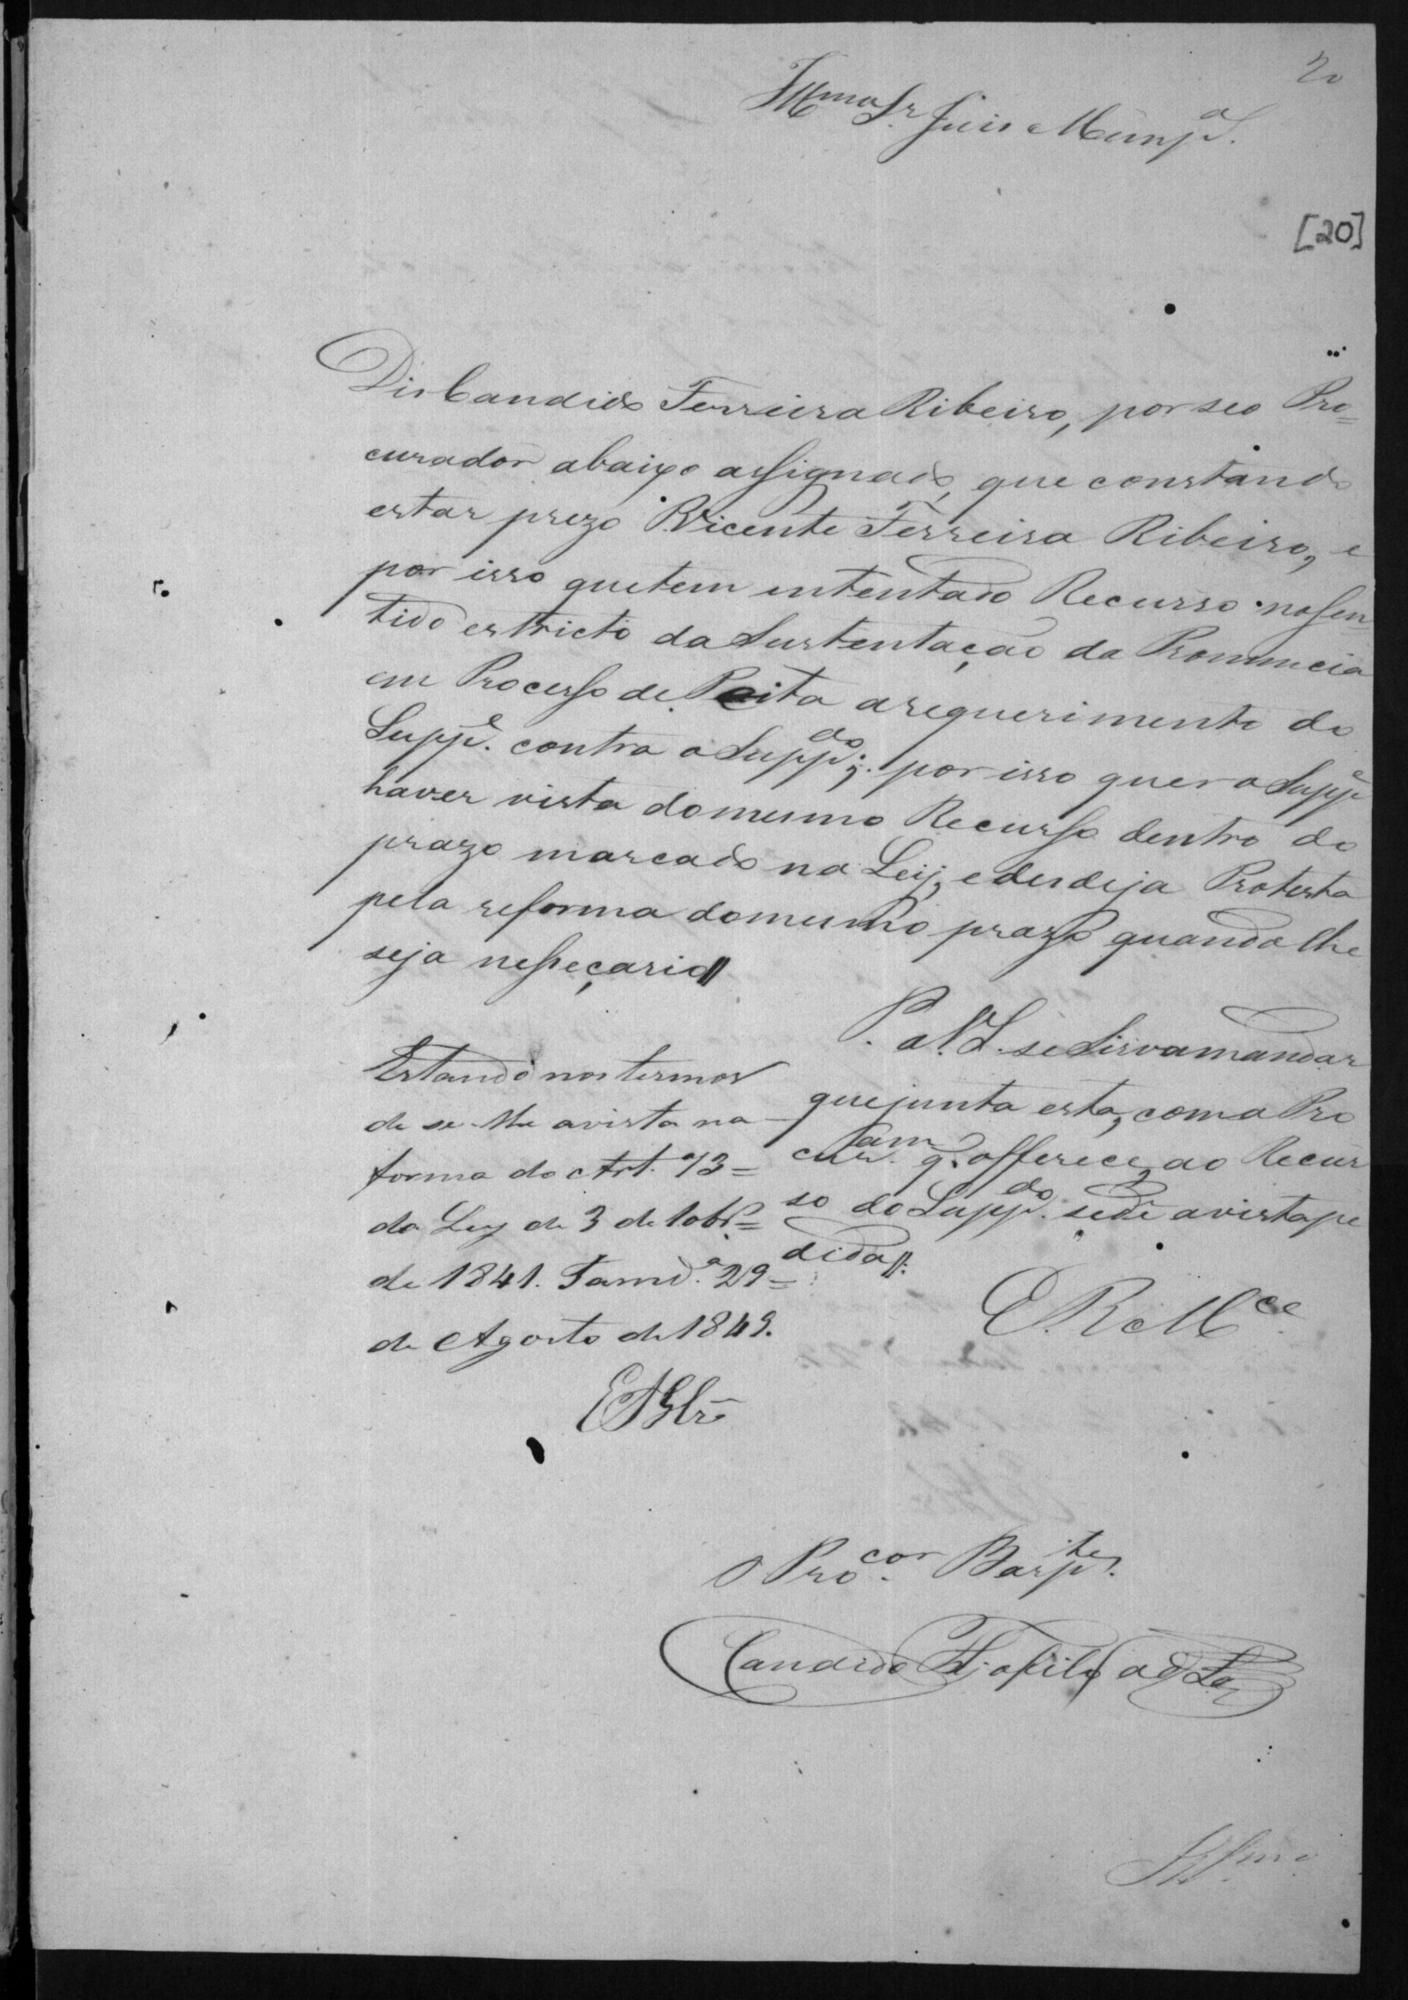 20
Illmo Sr. Juis Munpal.
[20]
Dis Candido Ferreira Ribeiro, por seo Pro=
curador abaixo assignado, que constando
estar prezo Vicente Ferreira Ribeiro, e
por isso que tem intentado Recurso no sen
tido estricto da Sustentação da Pronuncia
em Processo de Peita a requerimento do
Suppe. contra o Suppdo; por isso quer o Suppe
haver vista do mesmo Recurso dentro do
prazo marcado na Leij, e desdeja Protesta
pela reforma do mesmo prazo quando lhe
seja nesseçario
P. a V. S. se Sirva mandar
que junta esta, com a Pro
curam. q. offerece, ao Recur
so do Suppdo. se dê a vista pe
dida
E. R. Mce.
Estando nos termos
de se lhe a vista na
forma do Art. 73=
da Ley de 3 de 10br.=
de 1841. Tamd.a 29=
de Agosto de 1849.
O Procor. Barptes.
Candido